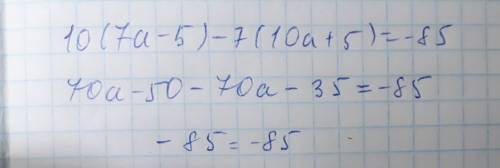 10(7a-5)-7(10a+5)=-85
70a-50-70a-35=-85
-85=-85